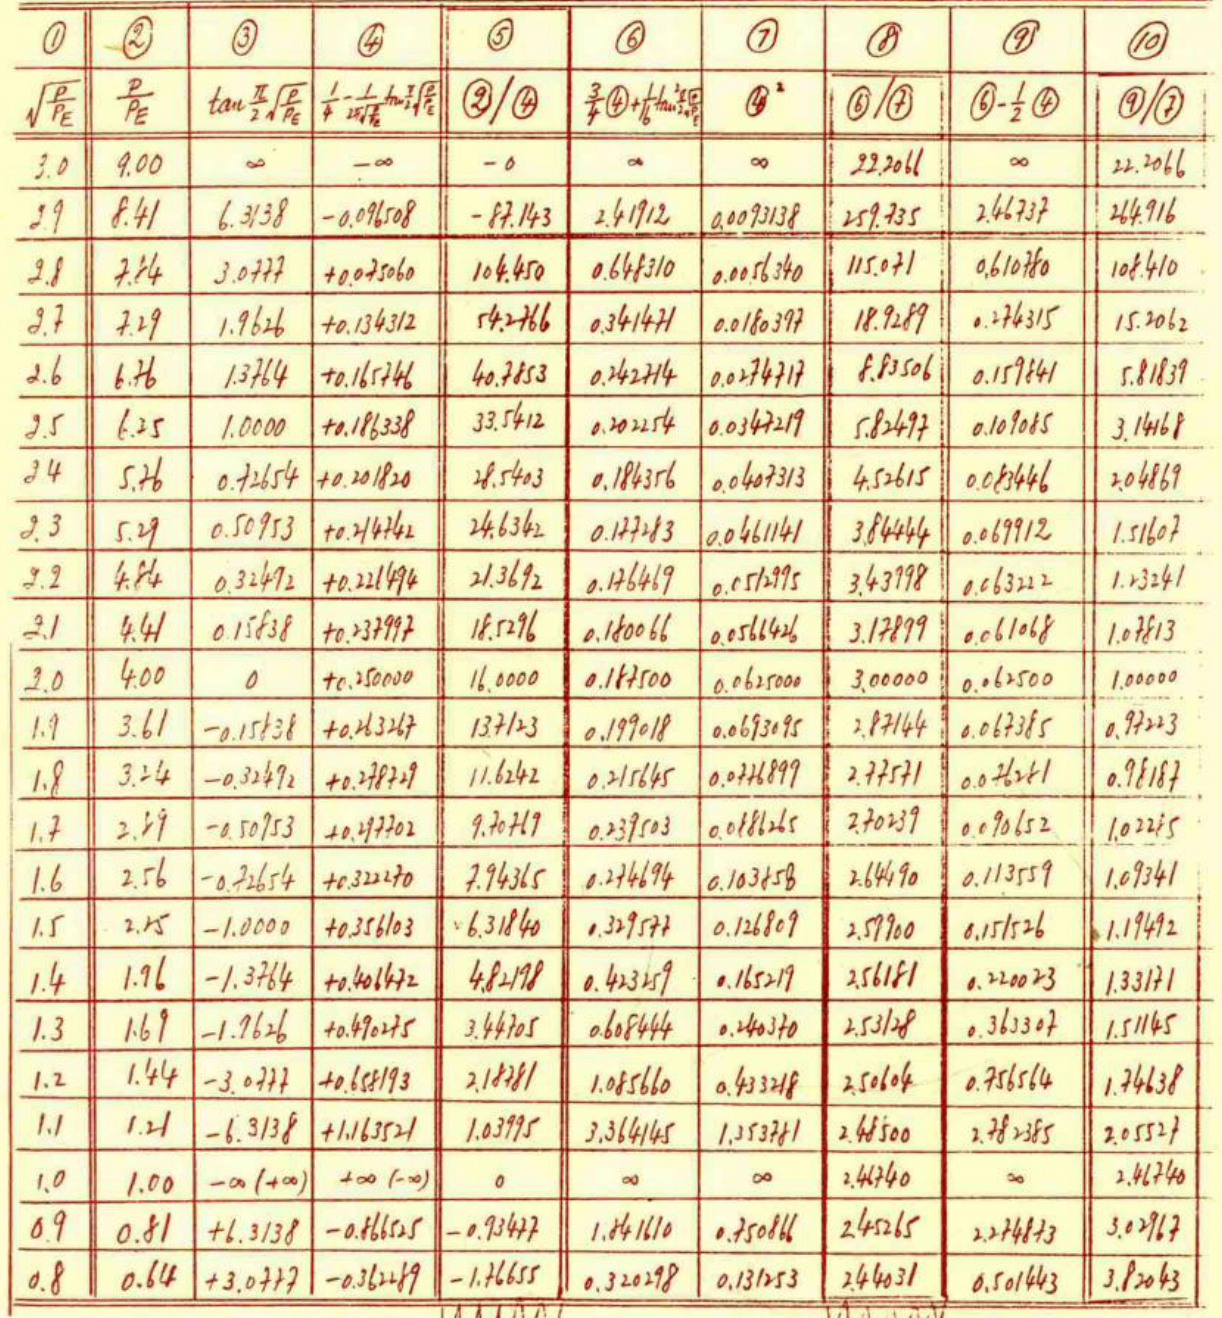 ① ② ③ ④ ⑤ ⑥ ⑦ ⑧ ⑨ ⑩
√(P/P_E) P/P_E tan π/2 √(P/P_E) 1/4 - 1/(2π√(P/P_E)) tan π/2 √(P/P_E) ②/④ 3/4 ④ + 1/16 tan² π/2 √(P/P_E) ④² ⑥/⑦ ⑥-1/2 ④ ⑨/⑦
3.0 9.00 ∞ -∞ -0 ∞ ∞ 22.2066 ∞ 22.2066
2.9 8.41 6.3138 -0.096508 -87.143 2.41912 0.0093138 259.735 2.46737 264.916
2.8 7.84 3.0777 +0.075060 104.450 0.648310 0.0056340 115.071 0.610780 108.410
2.7 7.29 1.9626 +0.134312 54.2766 0.341471 0.0180397 18.9289 0.274315 15.2062
2.6 6.76 1.3764 +0.165746 40.7853 0.242714 0.0274717 8.83506 0.159841 5.81839
2.5 6.25 1.0000 +0.186338 33.5412 0.202254 0.0347219 5.82497 0.109085 3.14168
2.4 5.76 0.72654 +0.201820 28.5403 0.184356 0.0407313 4.52615 0.083446 2.04869
2.3 5.29 0.50953 +0.214742 24.6342 0.177283 0.0461141 3.84444 0.069912 1.51607
2.2 4.84 0.32492 +0.226494 21.3692 0.176469 0.0512995 3.43998 0.063222 1.23241
2.1 4.41 0.15838 +0.237997 18.5296 0.180066 0.0566426 3.17899 0.061068 1.07813
2.0 4.00 0 +0.250000 16.0000 0.187500 0.0625000 3.00000 0.062500 1.00000
1.9 3.61 -0.15838 +0.263267 13.7123 0.199018 0.0693095 2.87144 0.067385 0.97223
1.8 3.24 -0.32492 +0.278729 11.6242 0.215645 0.0776899 2.77571 0.076281 0.98187
1.7 2.89 -0.50953 +0.297702 9.70769 0.239503 0.0886265 2.70239 0.090652 1.02285
1.6 2.56 -0.72654 +0.322270 7.94365 0.274694 0.103858 2.64490 0.113559 1.09341
1.5 2.25 -1.0000 +0.356103 6.31840 0.329577 0.126809 2.59900 0.151526 1.19492
1.4 1.96 -1.3764 +0.406472 4.82198 0.423259 0.165219 2.56181 0.220023 1.33171
1.3 1.69 -1.9626 +0.490275 3.44705 0.608444 0.240370 2.53128 0.363307 1.51145
1.2 1.44 -3.0777 +0.658193 2.18781 1.085660 0.433218 2.50604 0.756564 1.74638
1.1 1.21 -6.3138 +1.163521 1.03995 3.364145 1.353781 2.48500 2.782385 2.05527
1.0 1.00 -∞ (+∞) +∞ (-∞) 0 ∞ ∞ 2.46740 ∞ 2.46740
0.9 0.81 +6.3138 -0.866525 -0.93477 1.841610 0.750866 2.45265 2.274873 3.02967
0.8 0.64 +3.0777 -0.362289 -1.76655 0.320298 0.131253 2.44031 0.501443 3.82043